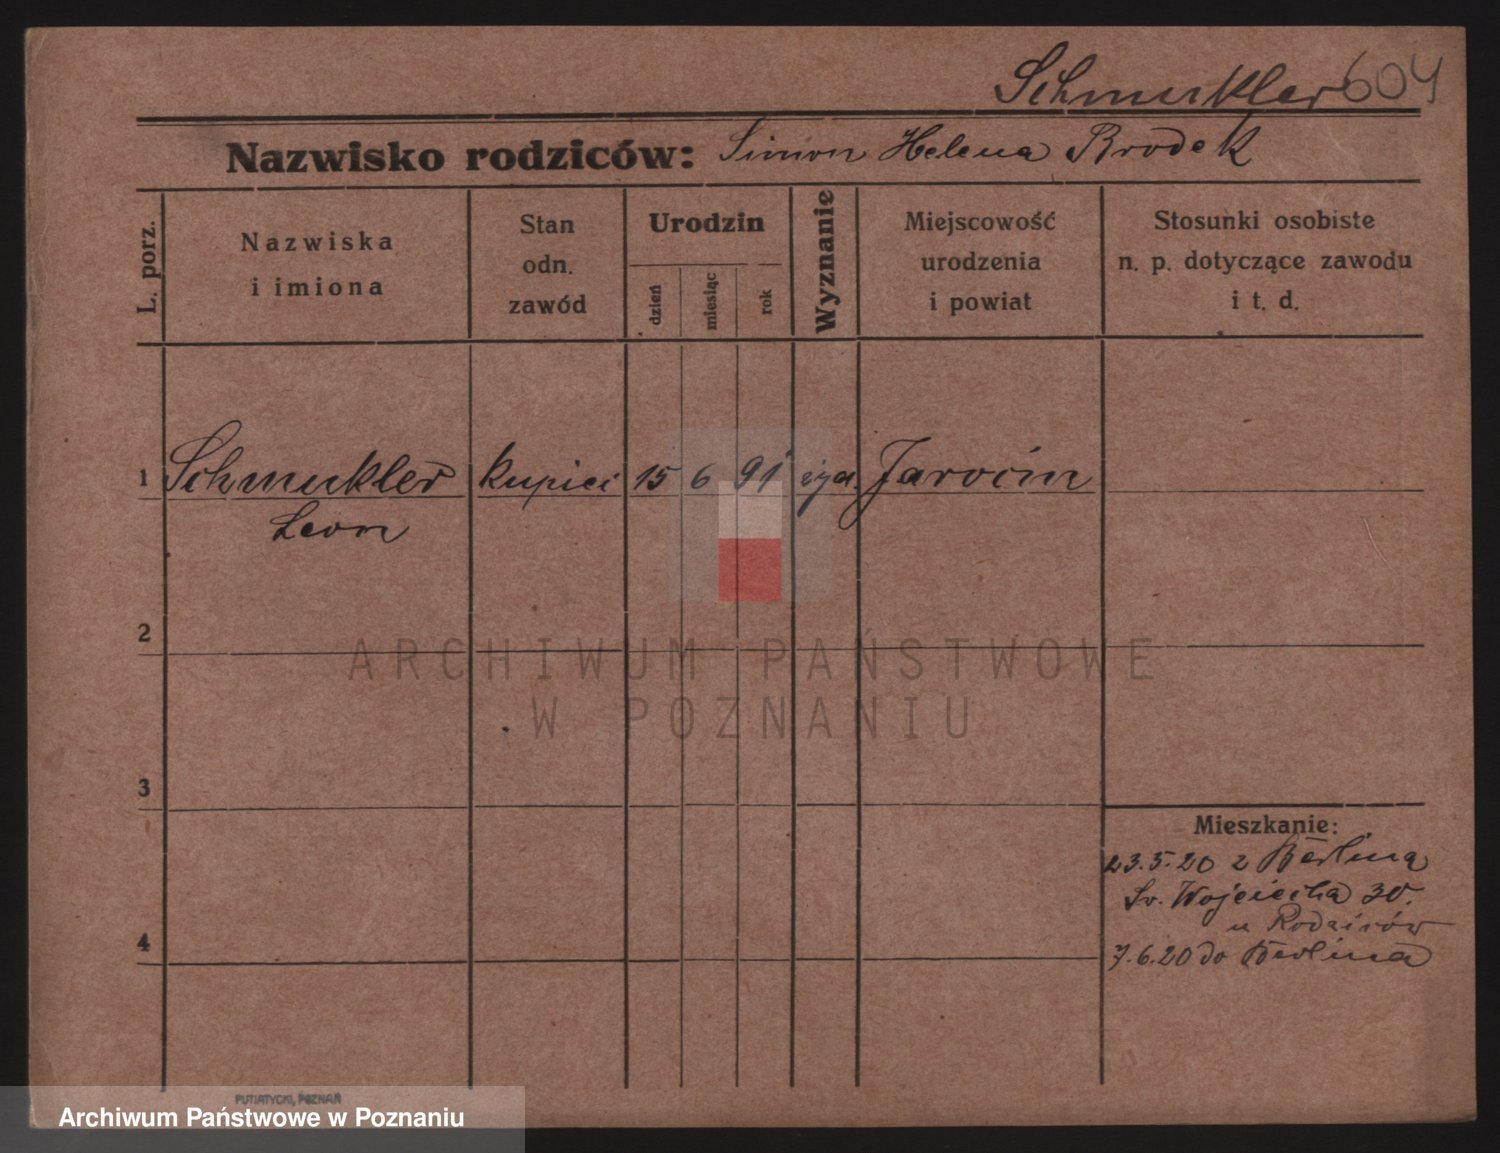 Schmukler 604
Nazwisko rodziców: Simon Helena Brodek
L. porz.
Nazwiska
i imiona
Stan
odn.
zawód
Urodzin
dzień
miesiąc
rok
Wyznanie
Miejscowość
urodzenia
i powiat
Stosunki osobiste
n. p. dotyczące zawodu
i t. d.
1 Schmukler kupiec 15 6 91 żyd. Jarocin
Leon
2
ARCHIWUM PAŃSTWOWE
W POZNANIU
3
Mieszkanie:
23.5.20 z Berlina
Św. Wojciecha 30.
u Rodziców
4
7.6.20 do Berlina
PUTIATYCKI, POZNAŃ
Archiwum Państwowe w Poznaniu